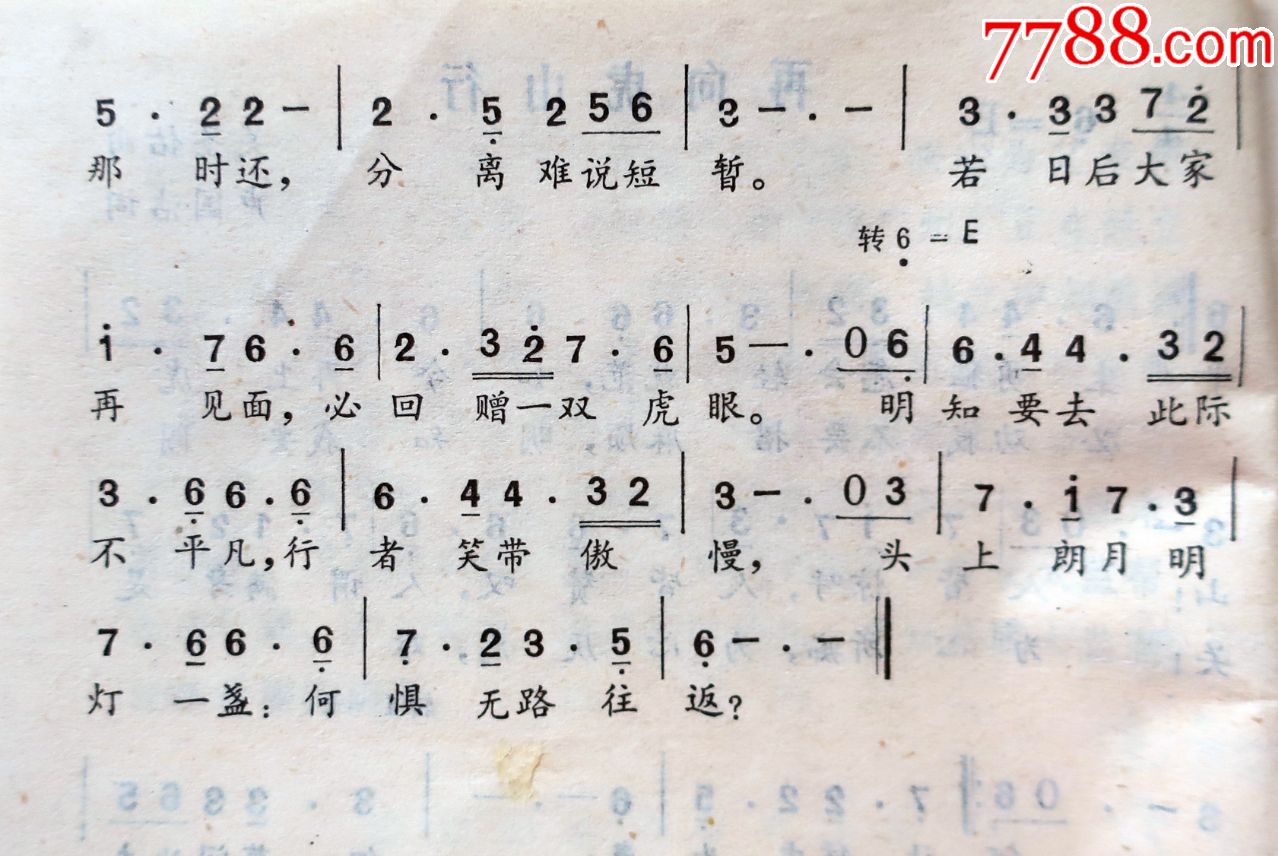 7788.com
5 · 2 2 — | 2 · 5 2 5 6 | 3 — · — | 3 · 3 3 7 2 |
那 时还, 分 离 难说短 暂。 若 日后大家
转 6 = E
1 · 7 6 · 6 | 2 · 3 2 7 · 6 | 5 — · 0 6 | 6 · 4 4 · 3 2 |
再 见面, 必 回 赠一双 虎 眼。 明 知 要去 此际
3 · 6 6 · 6 | 6 · 4 4 · 3 2 | 3 — · 0 3 | 7 · 1 7 · 3 |
不 平凡, 行 者 笑带 傲 慢, 头 上 朗月 明
7 · 6 6 · 6 | 7 · 2 3 · 5 | 6 — · — ‖
灯 一盏: 何 惧 无路 往 返?